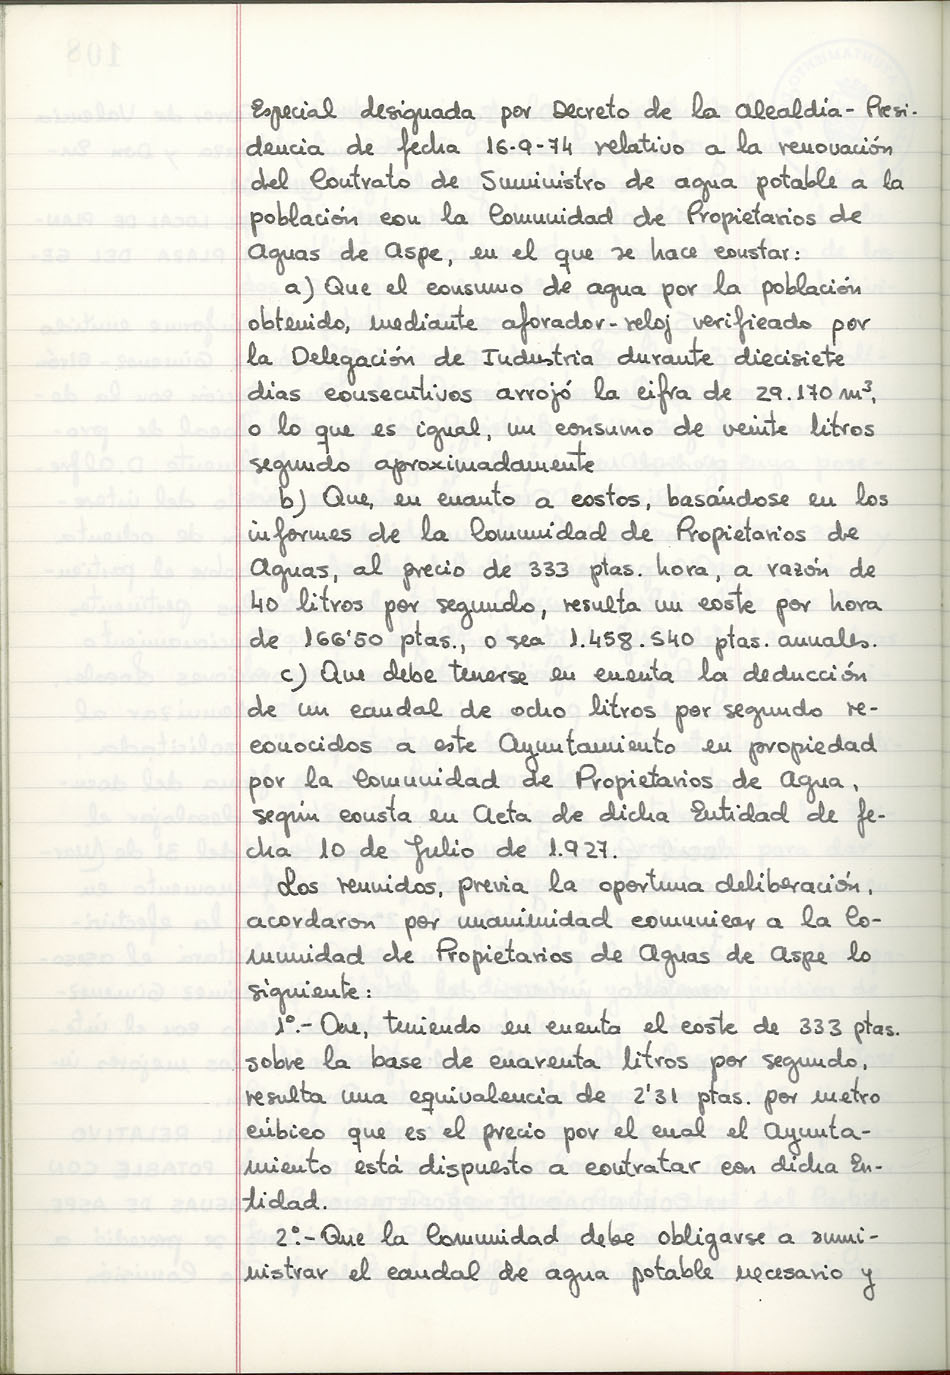 Especial designada por Decreto de la Alcaldía-Presi-
dencia de fecha 16-9-74 relativo a la renovación
del Contrato de Suministro de agua potable a la
población con la Comunidad de Propietarios de
Aguas de Aspe, en el que se hace constar:
a) Que el consumo de agua por la población
obtenido, mediante aforador-reloj verificado por
la Delegación de Industria durante diecisiete
dias consecutivos arrojó la cifra de 29.170 m³,
o lo que es igual, un consumo de veinte litros
segundo aproximadamente
b) Que, en cuanto a costos, basándose en los
informes de la Comunidad de Propietarios de
Aguas, al precio de 333 ptas. hora, a razón de
40 litros por segundo, resulta un coste por hora
de 166'50 ptas., o sea 1.458.540 ptas. anuales.
c) Que debe tenerse en cuenta la deducción
de un caudal de ocho litros por segundo re-
conocidos a este Ayuntamiento en propiedad
por la Comunidad de Propietarios de Agua,
según consta en Acta de dicha Entidad de fe-
cha 10 de Julio de 1.927.
Los reunidos, previa la oportuna deliberación,
acordaron por unanimidad comunicar a la Co-
munidad de Propietarios de Aguas de Aspe lo
siguiente:
1º.- Que, teniendo en cuenta el coste de 333 ptas.
sobre la base de cuarenta litros por segundo,
resulta una equivalencia de 2'31 ptas. por metro
cúbico que es el precio por el cual el Ayunta-
miento está dispuesto a contratar con dicha En-
tidad.
2º.- Que la Comunidad debe obligarse a sumi-
nistrar el caudal de agua potable necesario y